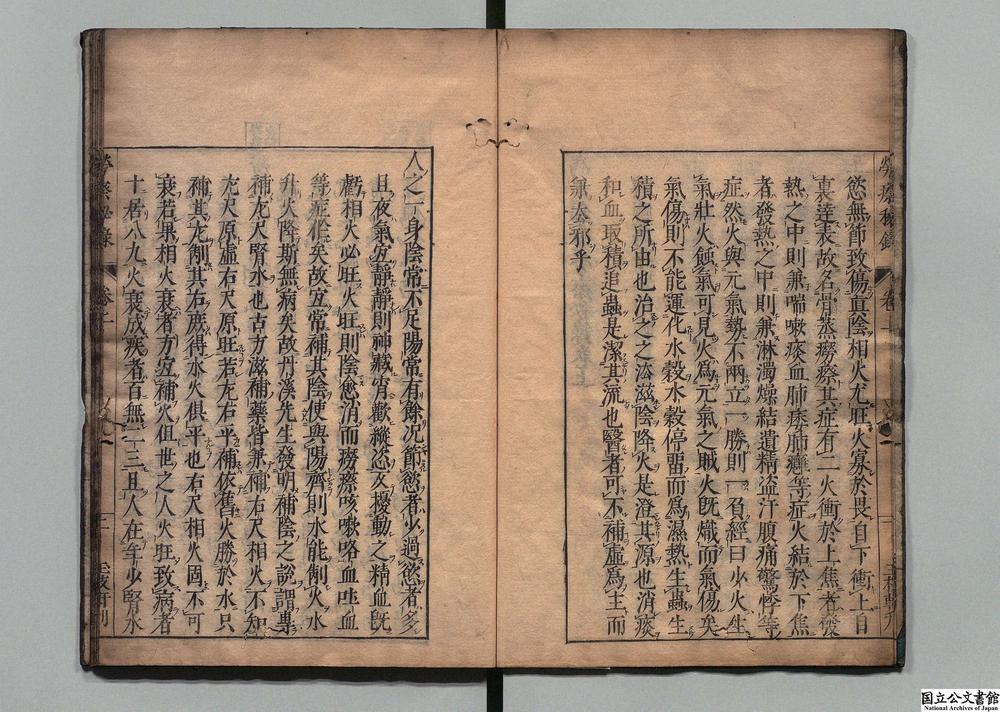 慾無節致傷真陰相火尤旺火寡於畏自下衝上自
裏達表故名骨蒸癆瘵其症有二火衝於上焦者發
熱之中則兼喘嗽痰血肺痿肺癰等症火結於下焦
者發熱之中則兼淋濁燥結遺精盜汗腹痛驚悸等
症然火與元氣勢不兩立一勝則一負經曰少火生
氣壯火蝕氣可見火爲元氣之賊火既熾而氣傷矣
氣傷則不能運化水穀水穀停畱而爲濕熱生蟲生
積之所由也治之之法滋陰降火是澄其源也消痰
和血取積追蟲是潔其流也醫者可不補虛爲主而
兼去邪乎
人之一身陰常不足陽常有餘况節慾者少過慾者多
且夜氣宜靜靜則神藏宵歡縱恣又擾動之精血既
虧相火必旺火旺則陰愈消而癆瘵咳嗽咯血吐血
等症作矣故宜常補其陰使與陽齊則水能制火水
升火降斯無病矣故丹溪先生發明補陰之說謂專
補左尺腎水也古方滋補藥皆兼補右尺相火不知
左尺原虛右尺原旺若左右平補依舊火勝於水只
補其左制其右庶得水火俱平也右尺相火固不可
衰若果相火衰者方宜補火但世之人火旺致病者
十居八九火衰成疾者百無二三且人在年少腎水
国立公文書館
National Archives of Japan